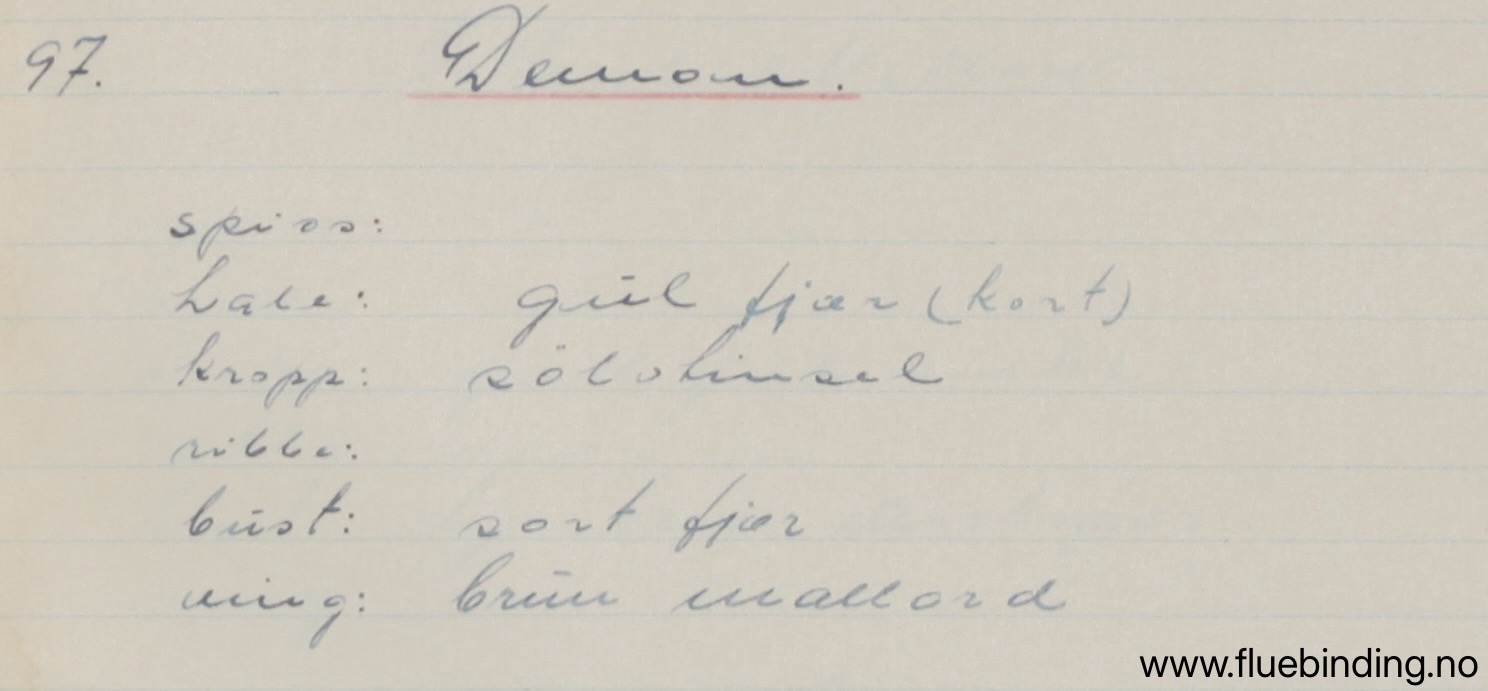 97. Demon.
spiss:
hale: gul fjær (kort)
kropp: sölvtinsel
ribbe:
bust: sort fjær
ving: brun mallord
www.fluebinding.no